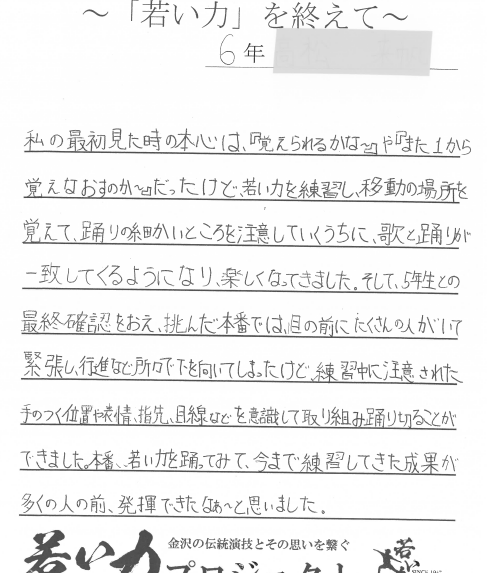 ～「若い力」を終えて～
6年
私の最初見た時の本心は、『覚えられるかな～』や『また1から
覚えなおすのか～』だったけど、若い力を練習し、移動の場所を
覚えて、踊りの細かいところを注意していくうちに、歌と踊りが
一致してくるようになり、楽しくなってきました。そして、5年生との
最終確認をおえ、挑んだ本番では、目の前にたくさんの人がいて
緊張し、行進など所々で下を向いてしまったけど、練習中に注意された
手のつく位置や表情、指先、目線などを意識して取り組み踊り切ることが
できました。本番、若い力を踊ってみて、今まで練習してきた成果が
多くの人の前、発揮できたなぁ～と思いました。
金沢の伝統演技とその思いを繋ぐ
若い力プロジェクト
若い